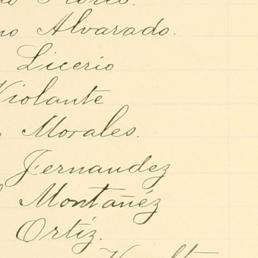 Flores.
Alvarado.
Licerio
Violante
Morales.
Fernandez
Montañéz
Ortíz.